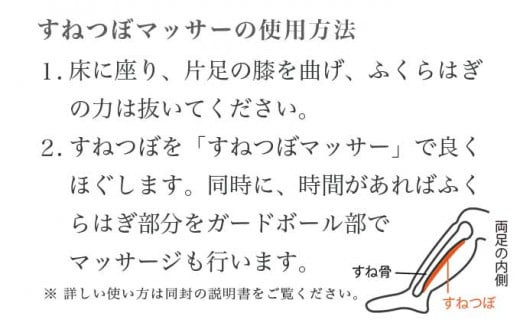 すねつぼマッサーの使用方法
1. 床に座り、片足の膝を曲げ、ふくらはぎ
の力は抜いてください。
2. すねつぼを「すねつぼマッサー」で良く
ほぐします。同時に、時間があればふく
らはぎ部分をガードボール部で
マッサージも行います。
※ 詳しい使い方は同封の説明書をご覧ください。
両足の内側
すね骨
すねつぼ